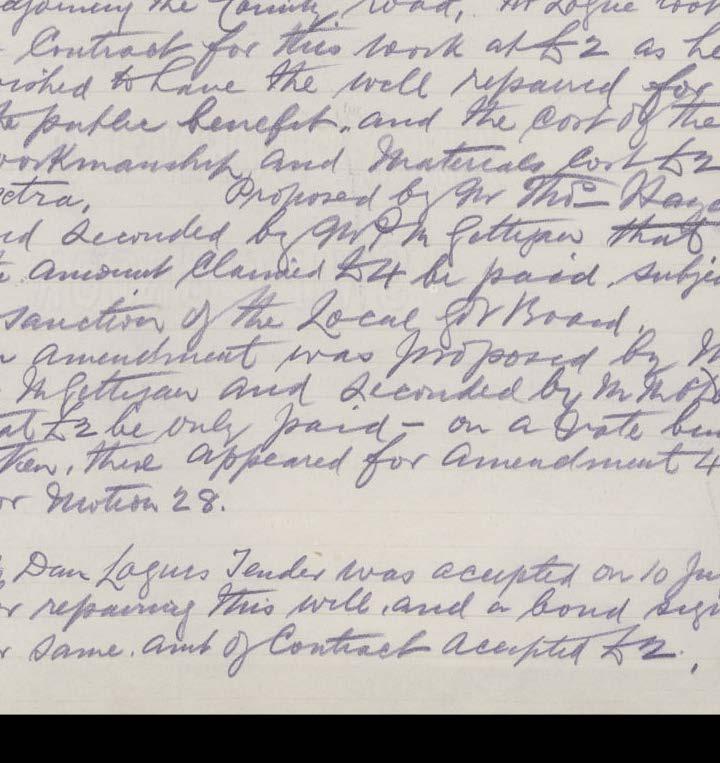 adjoining the County road, Mr Logue took
Contract for this work at £2 as he
wished to have the well repaired for
public benefit, and the cost of the
workmanship and Materials cost £2
extra, Proposed by Mr Thos
and Seconded by Mr P McGettigan that
amount Claimed £4 be paid, subje
sanction of the Local Gov Board,
amendment was proposed by M
McGettigan and Seconded by Mr
that £2 be only paid – on a vote
taken, there appeared for Amendment 4
for Motion 28.
Dan Logues Tender was accepted on 10
for repairing this well, and a bond sig
same. amt of Contract accepted £2.